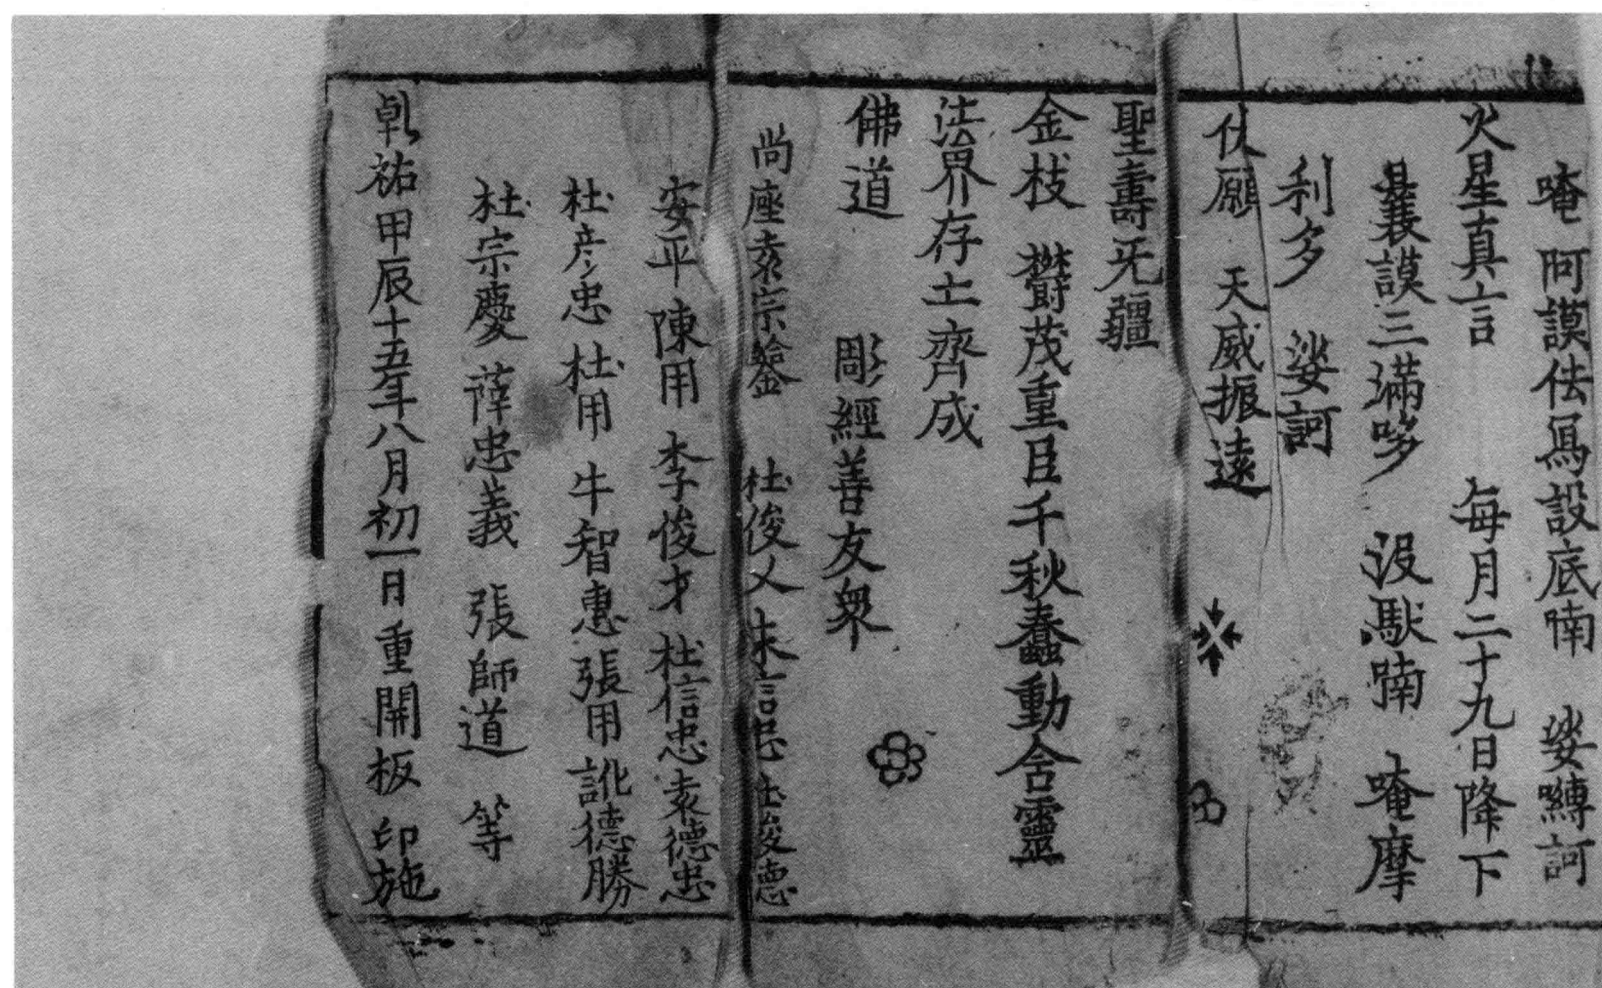 唵 阿謨佉焉設底喃 娑嚩訶
火星真言 每月二十九日降下
曩謨三滿哆 沒馱喃 唵摩
利多 娑訶
伏願 天威振遠
聖壽无疆
金枝 欝茂重臣千秋蠢動含靈
法界存土齊成
佛道 彫經善友衆
尚座袁宗鑒 杜俊乂 朱信忠 杜俊德
安平 陳用 李俊才 杜信忠 袁德忠
杜彥忠 杜用 牛智惠 張用 訛德勝
杜宗慶 薛忠義 張師道 等
乹祐甲辰十五年八月初一日重開板 印施